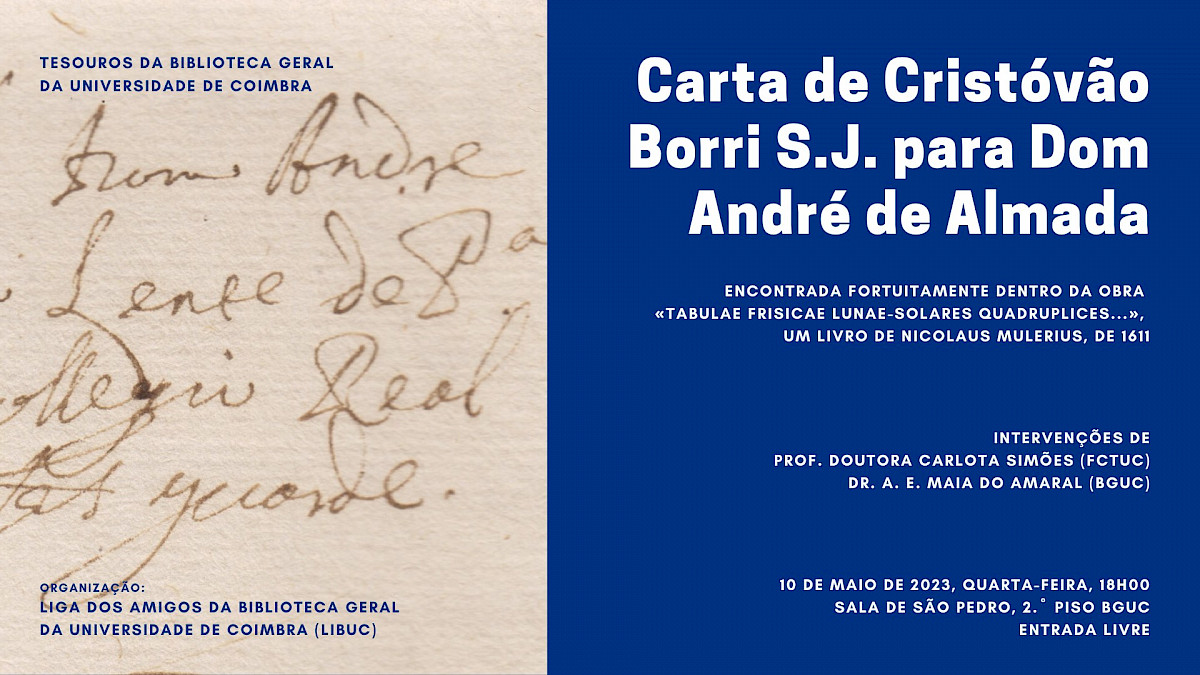 TESOUROS DA BIBLIOTECA GERAL
DA UNIVERSIDADE DE COIMBRA
Andre
Lente de
Real
guarde.
ORGANIZAÇÃO:
LIGA DOS AMIGOS DA BIBLIOTECA GERAL
DA UNIVERSIDADE DE COIMBRA (LIBUC)
Carta de Cristóvão
Borri S.J. para Dom
André de Almada
ENCONTRADA FORTUITAMENTE DENTRO DA OBRA
«TABULAE FRISICAE LUNAE-SOLARES QUADRUPLICES...»,
UM LIVRO DE NICOLAUS MULERIUS, DE 1611
INTERVENÇÕES DE
PROF. DOUTORA CARLOTA SIMÕES (FCTUC)
DR. A. E. MAIA DO AMARAL (BGUC)
10 DE MAIO DE 2023, QUARTA-FEIRA, 18H00
SALA DE SÃO PEDRO, 2.° PISO BGUC
ENTRADA LIVRE